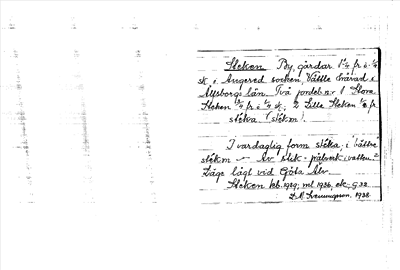 Steken By, gårdar 1 1/4 fr o 1/4
sk. i Angered socken, Vättle härad i
Älfsborgs län. Två jordeb:nr 1 Stora
Steken 3/4 fr o 1/4 sk; 2 Lilla Steken 1/2 fr
stéka, stékm!
I vardaglig form stéka, i bättre
stékm — Av stik = pålverk i vatten?
Läge lågt vid Göta Älv.
Steken kb. 1929; ml 1936, ek; G 32
1938